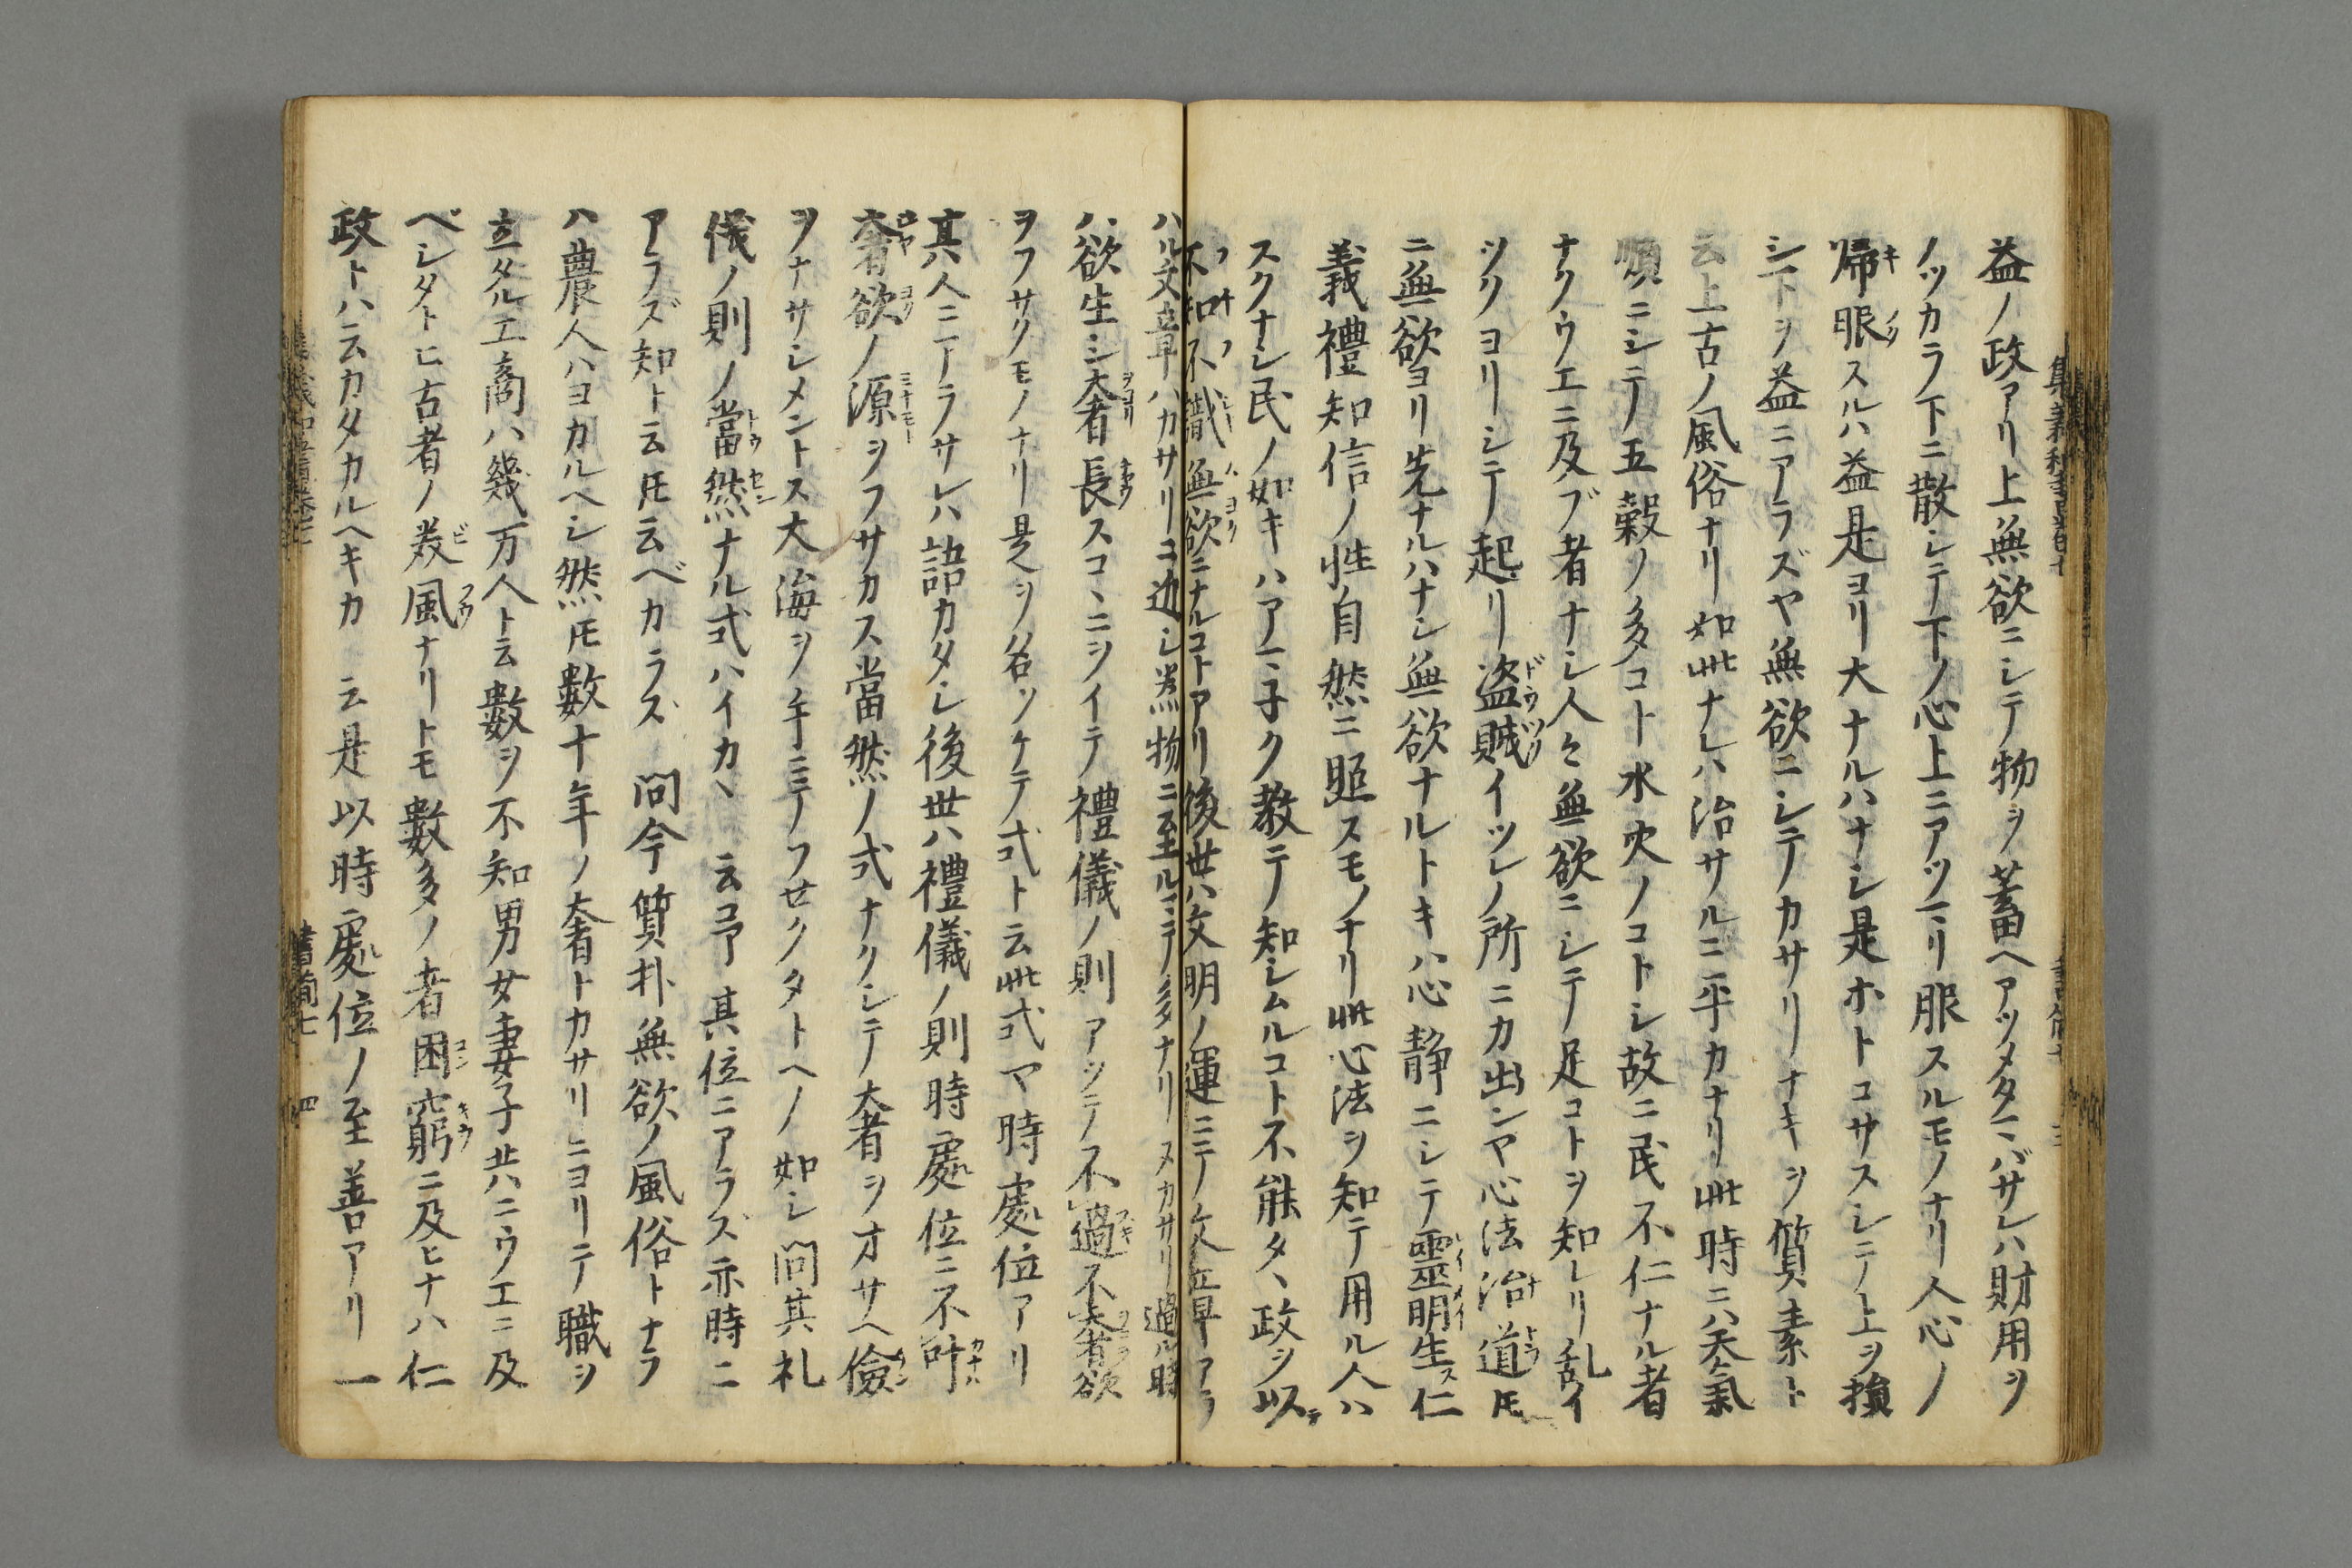 益ノ政アリ上無欲ニシテ物ヲ蓄ヘアツメタマバサレハ財用ヲ
ノツカラ下ニ散シテ下ノ心上ニアツマリ服スルモノナリ人心ノ
帰服スルハ益是ヨリ大ナルハナシ是ホトコサスシテ上ヲ損
シ下ヲ益ニアラズヤ無欲ニシテカサリナキヲ質素ト
云上古ノ風俗ナリ如此ナレハ治サルニ平カナリ此時ニハ天氣
順ニシテ五穀ノ多コト水火ノコトシ故ニ民不仁ナル者
ナクウエニ及ブ者ナシ人々無欲ニシテ足コトヲ知レリ乱イ
ツクヨリシテ起リ盗賊イツレノ所ニカ出ンヤ心法治道𪜈
ニ無欲ヨリ先ナルハナシ無欲ナルトキハ心静ニシテ靈明生ス仁
義禮知信ノ性自然ニ照スモノナリ此心法ヲ知テ用ル人ハ
スクナシ民ノ如キハアマネク教テ知シムルコト不能タヽ政ヲ以テ
不知不識無欲ニナルコトアリ後世ハ文明ノ運ニテ文章アラ
ハル文章ハカサリニ近シ美物ニ至ルマテ多ナリヌカサリ過ル時
ハ欲生シ奢長スコヽニヲイテ禮儀ノ則アツテ不過不奢欲
ヲフサクモノナリ是ヲ名ツケテ式ト云此式ヤ時處位アリ
其人ニアラサレハ語カタシ後世ハ禮儀ノ則時處位ニ不叶
奢欲ノ源ヲフサカス當然ノ式ナクシテ奢ヲオサヘ儉
ヲナサシメントス大海ヲ手ニテフセクタトヘノ如シ問其礼
儀ノ則ノ當然ナル式ハイカヽ 云予其位ニアラズ亦時ニ
アラズ知ト云𪜈云ベカラズ 問今質朴無欲ノ風俗トナラ
ハ農人ハヨカルヘシ然𪜈數十年ノ奢トカサリニヨリテ職ヲ
立タル工商ハ幾万人ト云數ヲ不知男女妻子共ニウエニ及
ベシタトヒ古者ノ美風ナリトモ數多ノ者困窮ニ及ヒナハ仁
政トハ云カタカルヘキカ 云是以時處位ノ至善アリ一
書簡七 四